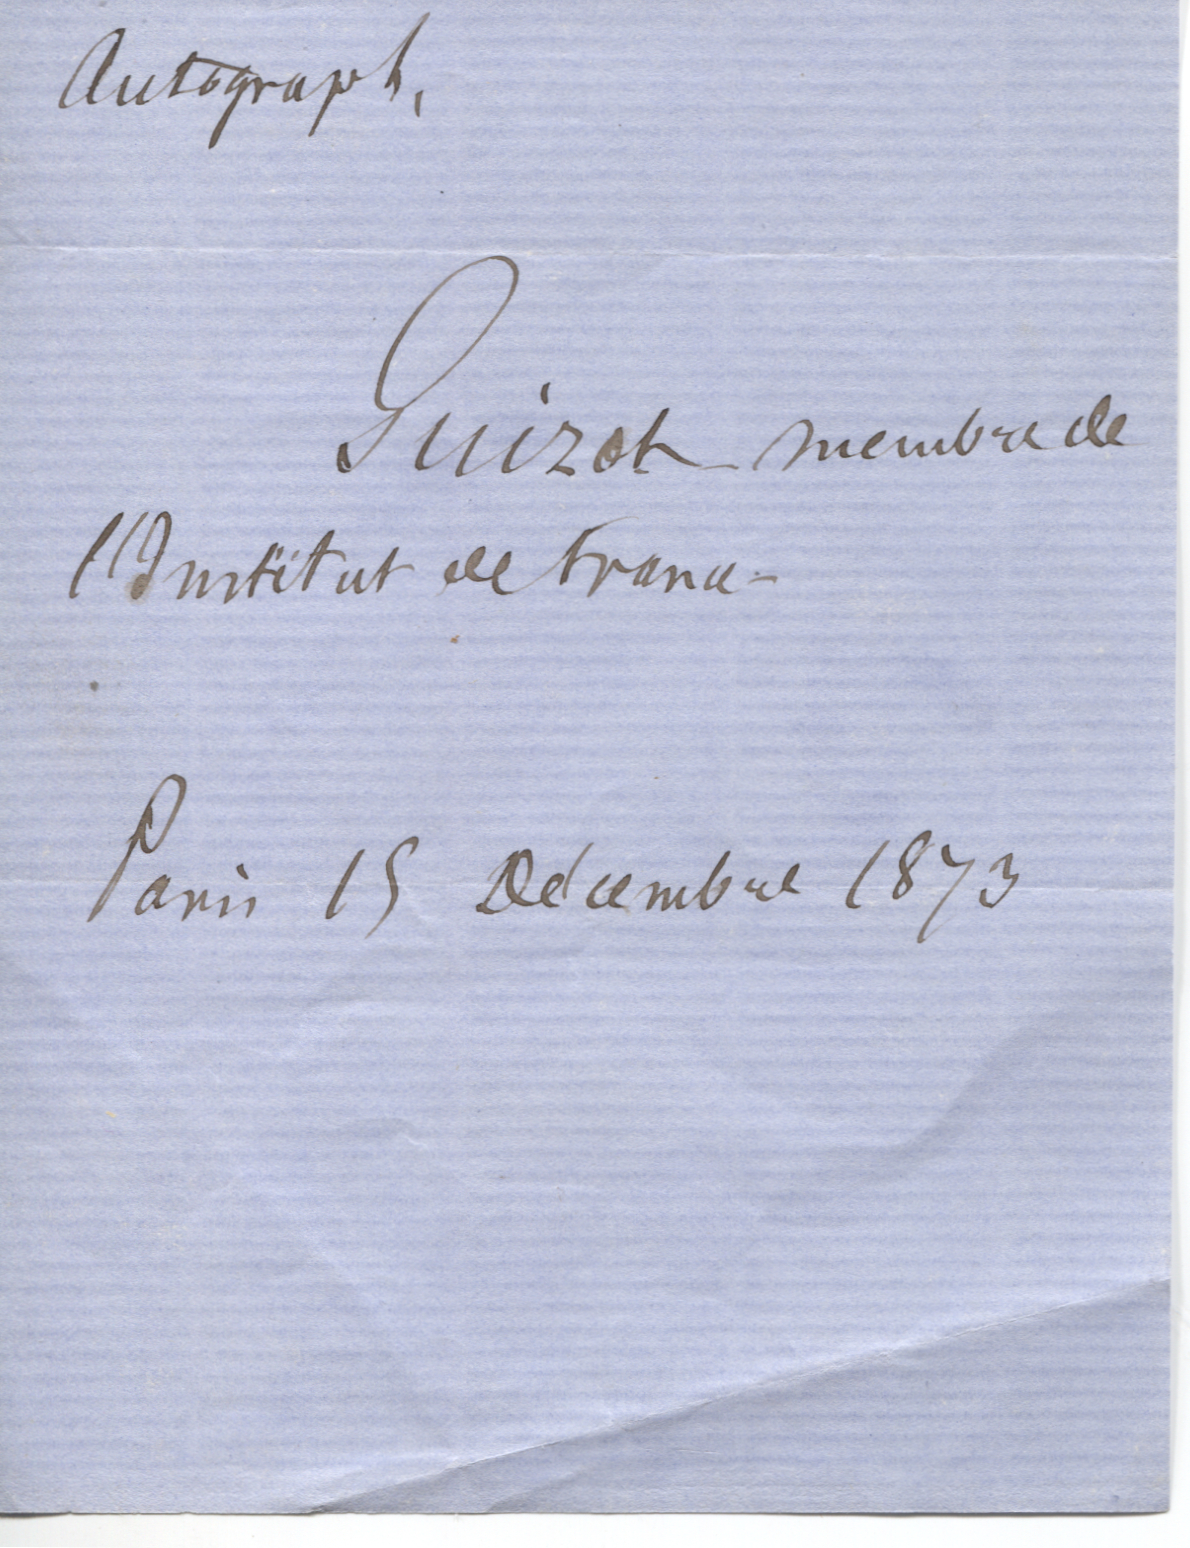 Autograph,
Guizot membre de
l'Institut de France
Paris 15 Décembre 1873